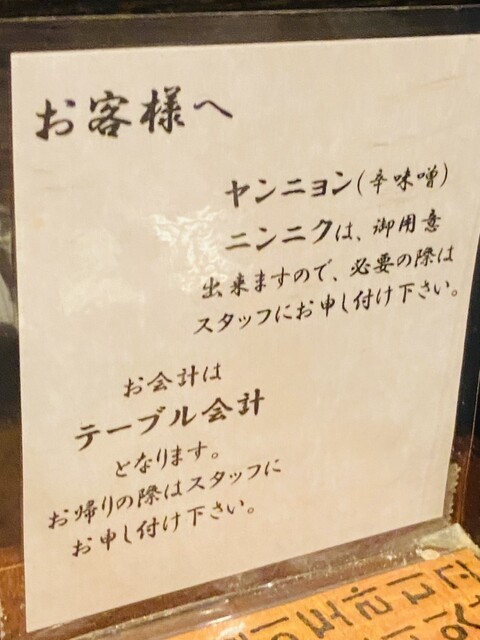 お客様へ
ヤンニョン(辛味噌)
ニンニクは、御用意
出来ますので、必要の際は
スタッフにお申し付け下さい。
お会計は
テーブル会計
となります。
お帰りの際はスタッフに
お申し付け下さい。